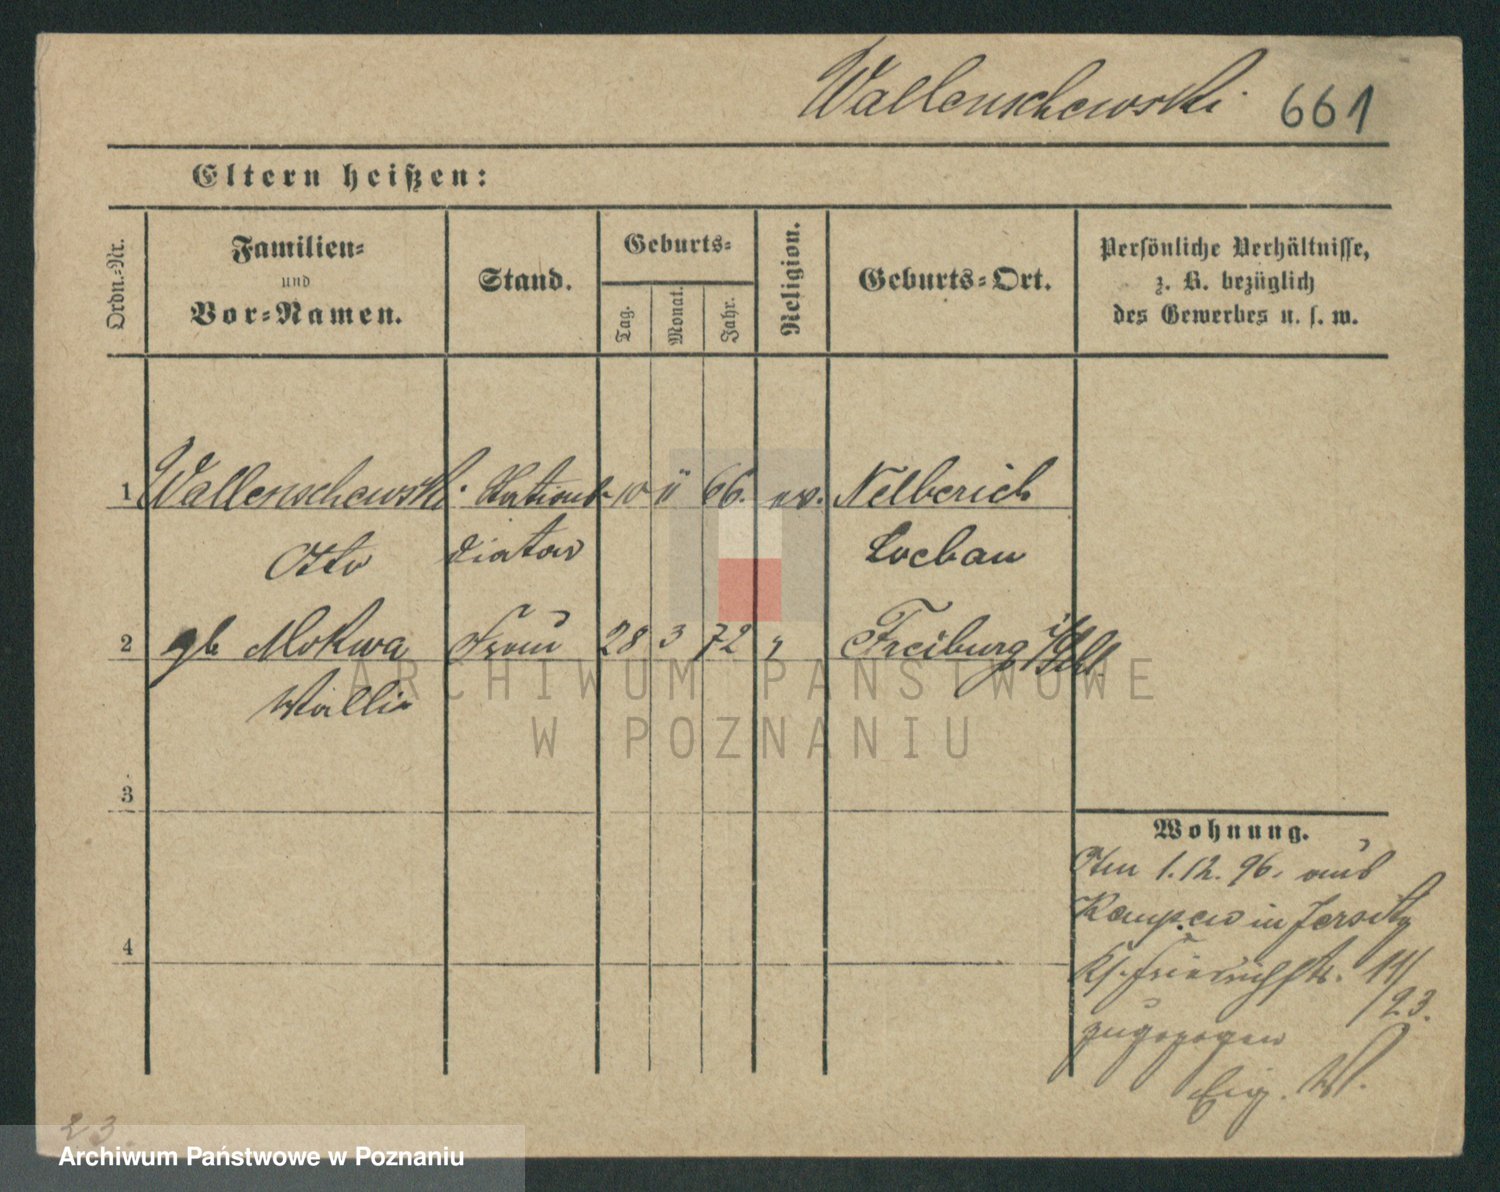 Wallenschewski 661
Eltern heißen:
Ordn.-Nr.
Familien-
und
Vor-Namen.
Stand.
Geburts-
Tag.
Monat.
Jahr.
Religion.
Geburts-Ort.
Persönliche Verhältnisse,
z. B. bezüglich
des Gewerbes u. s. w.
1 Wallenschewski Stations- 10 11 66. ev.
Otto diätar Loebau
2 gb Mokwa Frau 28 3 72 " Freiburg i/Schl.
Wallie
3
4
Wohnung.
Am 1.12.96. aus
Kempen in Jersitz
Kl. Friedrichstr. 11/
/23.
zugezogen
Eig. W.
23.
ARCHIWUM PAŃSTWOWE
W POZNANIU
Archiwum Państwowe w Poznaniu